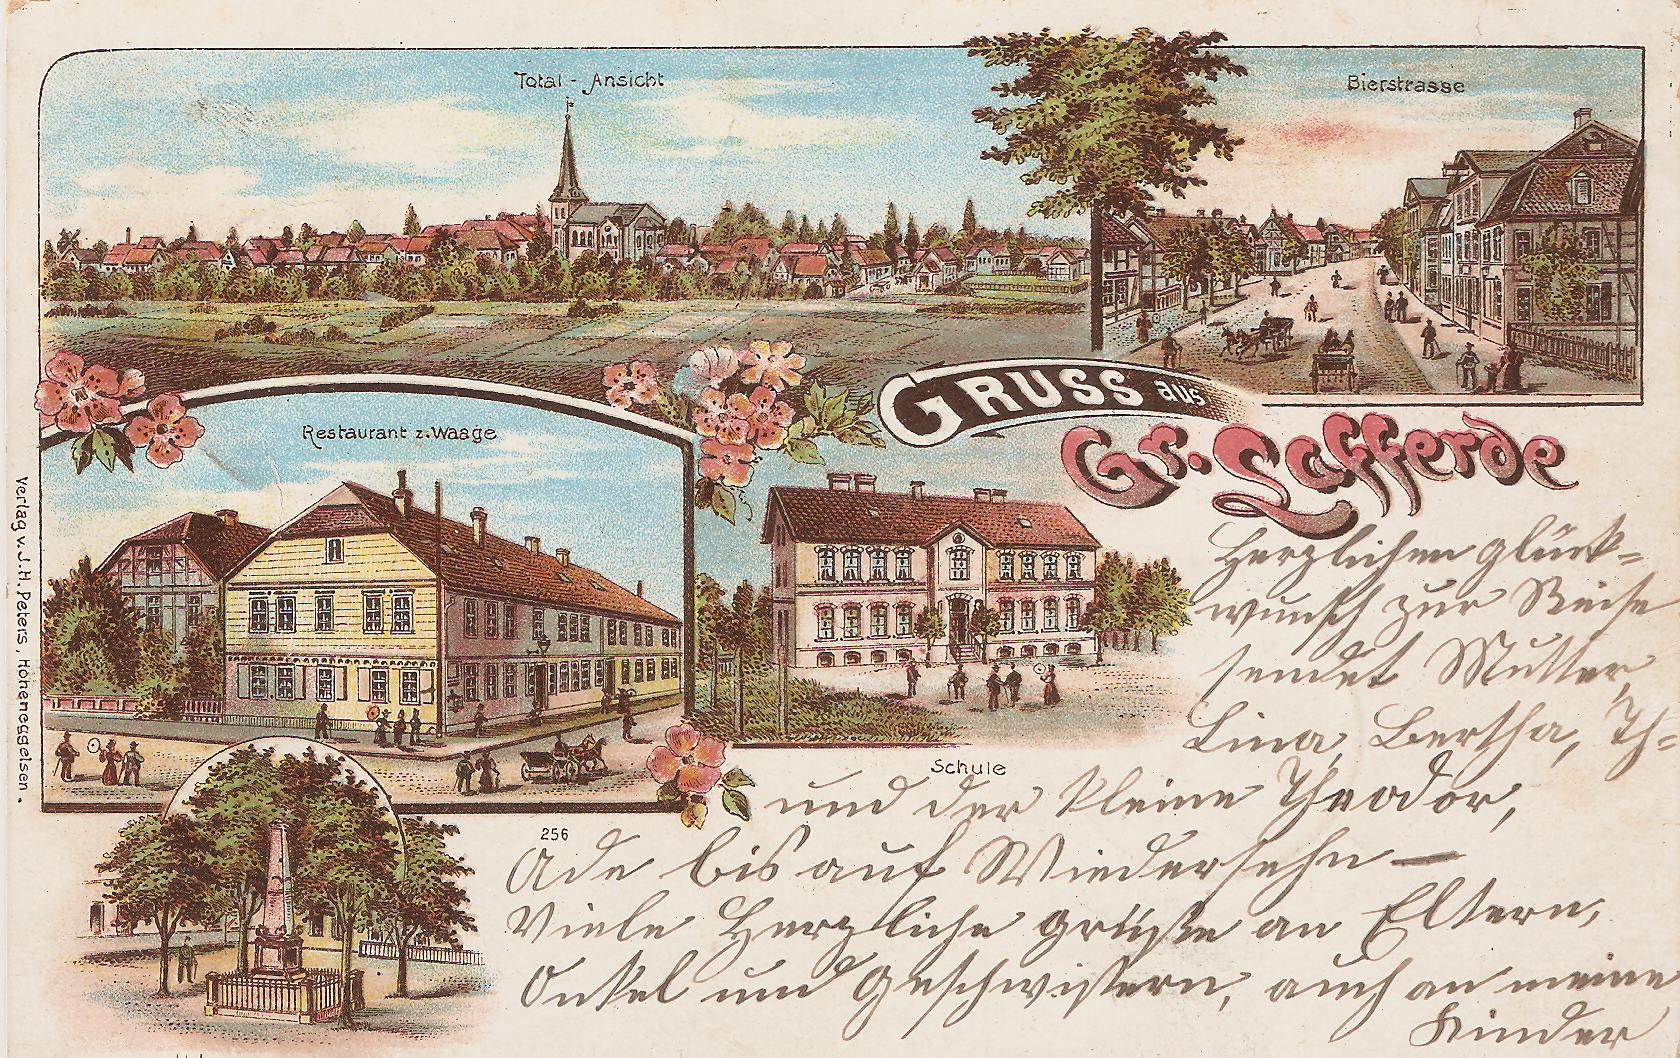 Total - Ansicht
Bierstrasse
GRUSS aus
Gr. Lafferde
Restaurant z. Waage
Verlag v. J. H. Peters, Hoheneggelsen.
Schule
256
Herzlichen Glück-
wunsch zur Reise
sendet Mutter,
Lina, Bertha, Th-
und der kleine Theodor,
Ade bis auf Wiedersehn —
Viele Herzliche Grüße an Eltern,
Onkel und Geschwistern, auch an meine
Kinder